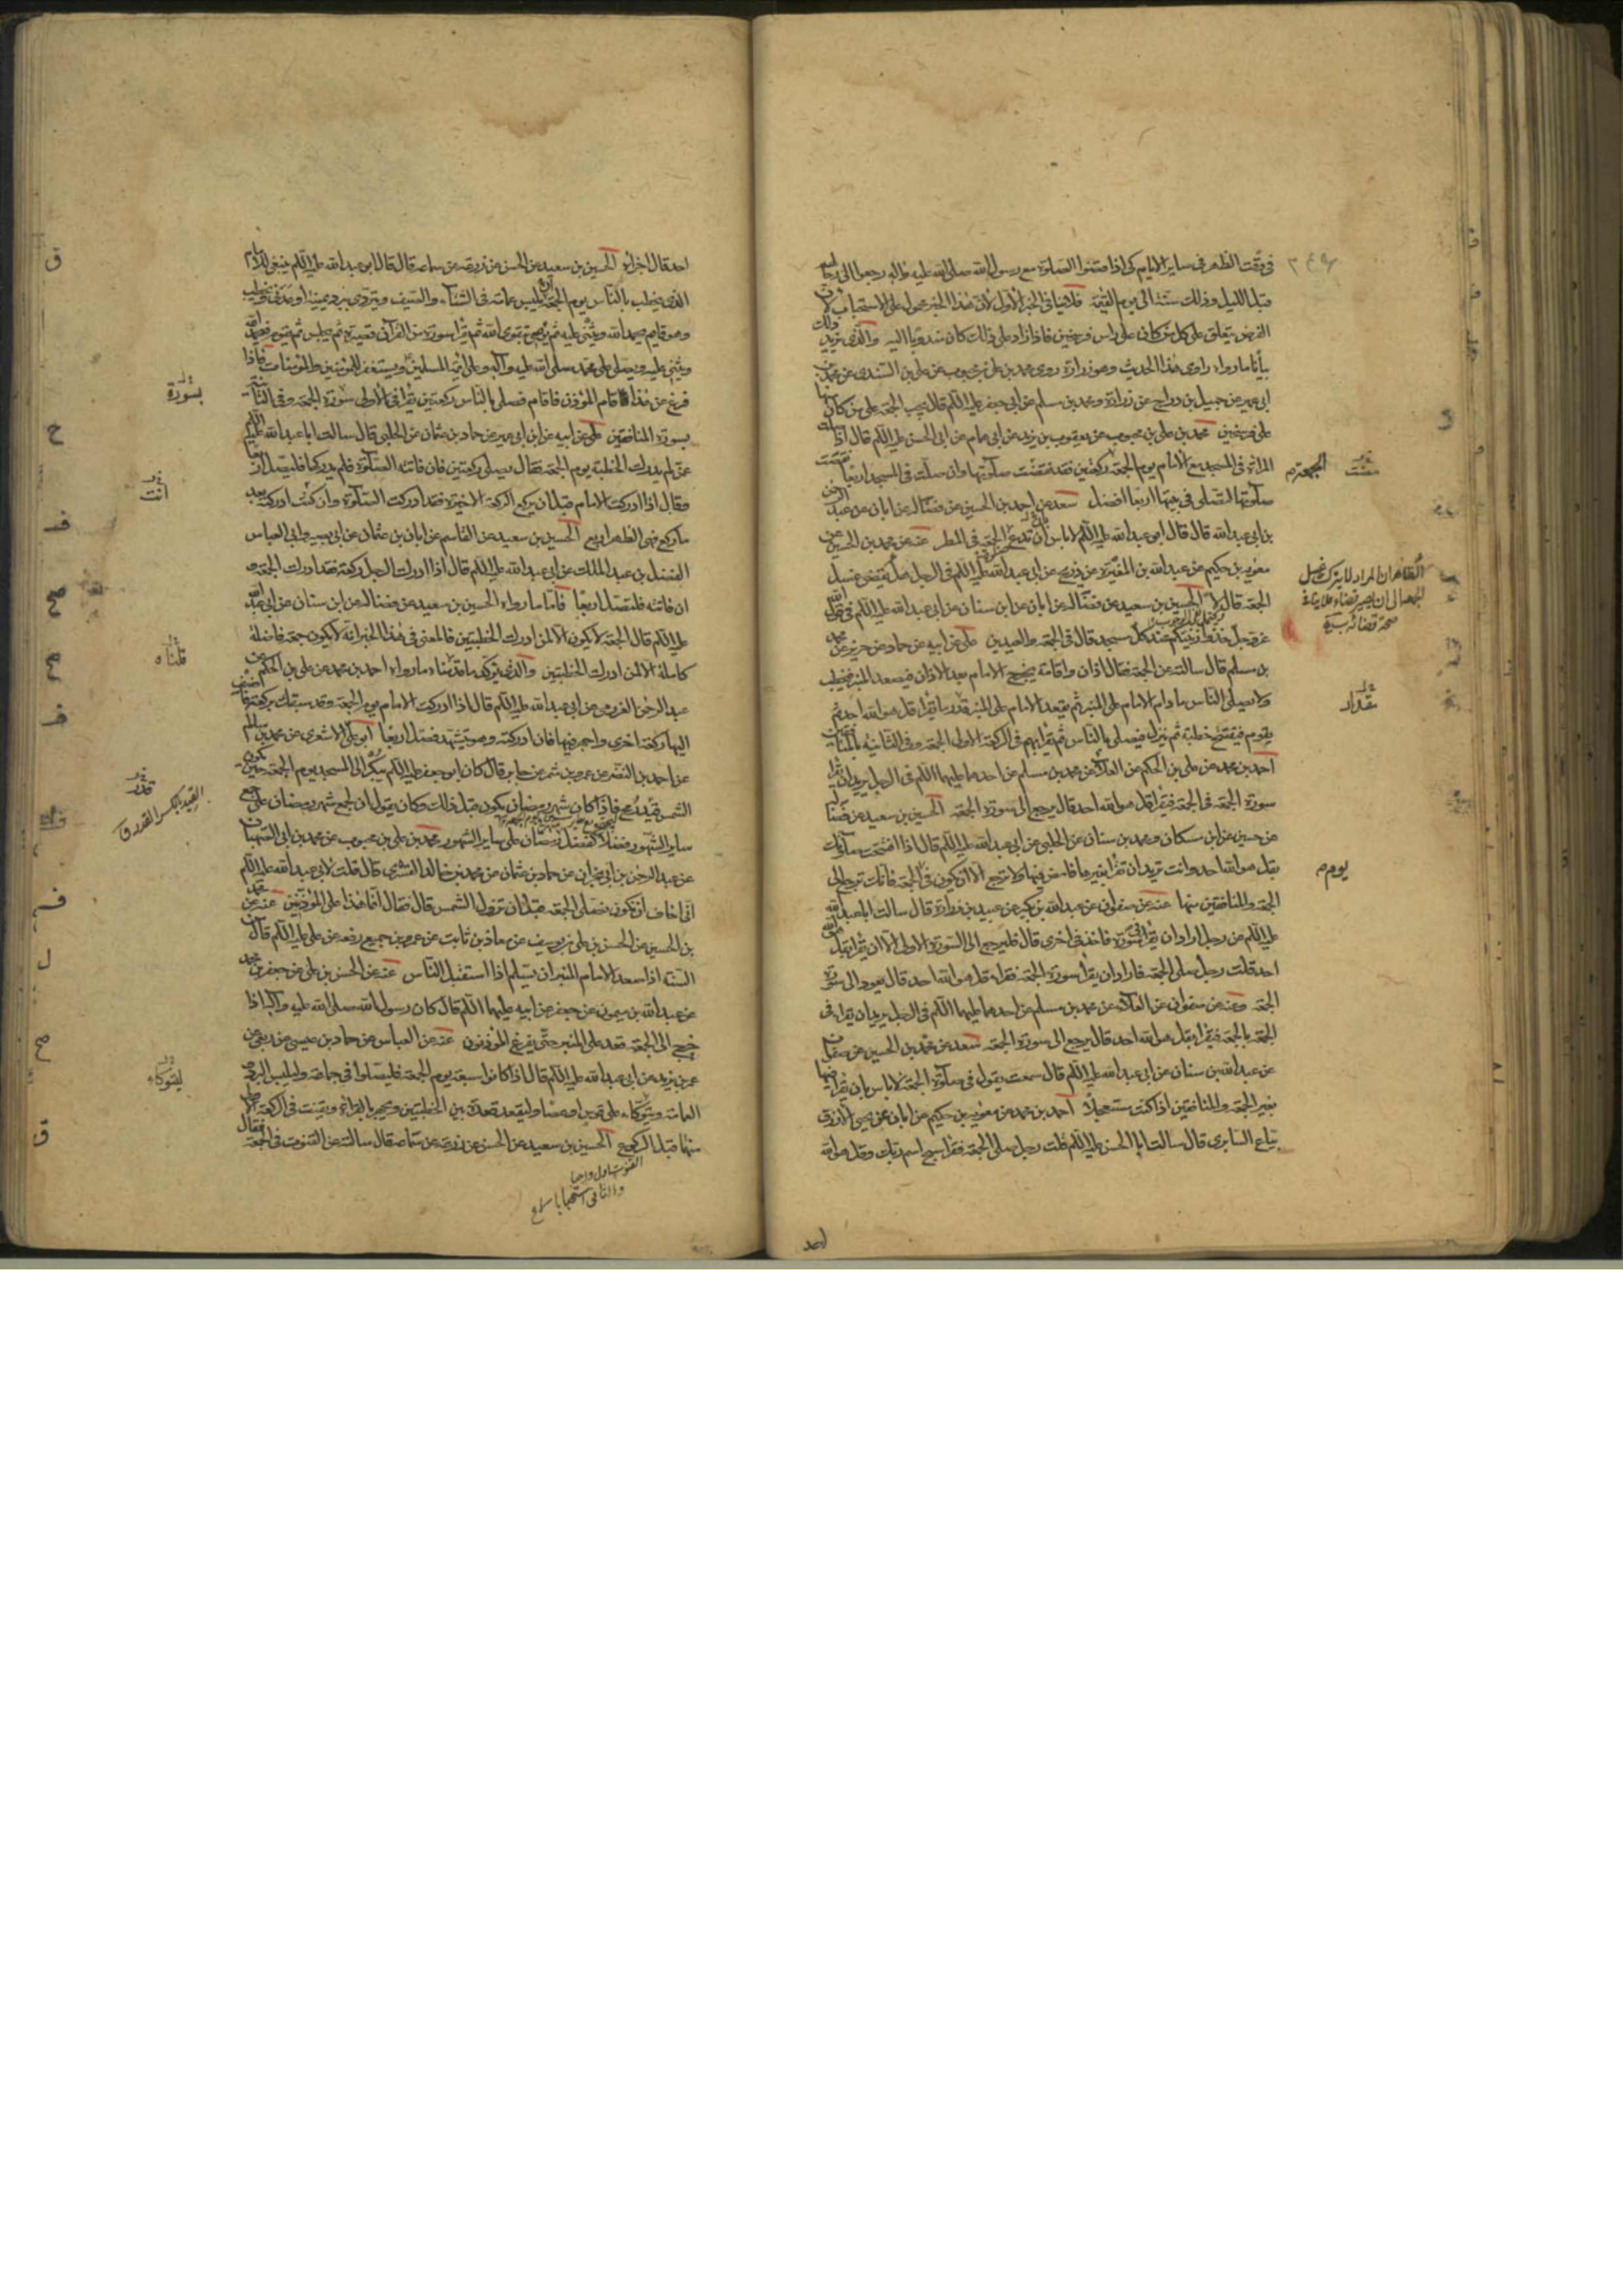 فى وقت الظهر فى ساير الايام كى اذا صلوا الصلوة مع رسول الله صلى الله عليه واله رجعوا الى رحالهم
قبل الليل وذلك سنة الى يوم القيمة فلا ينافى الخبر الاول لان هذا الخبر محمول على الاستحباب لان
الفرض يتعلق على كل من كان على راس فرسخين فاذا زاد على ذلك كان مندوبا اليه والذى يزيد ذلك
بيانا ما رواه راوى هذا الحديث وهو زرارة روى محمد بن على بن محبوب عن على بن السندى عن محمد بن
ابى عمير عن جميل بن دراج عن زرارة ومحمد بن مسلم عن ابى جعفر عليه السلم قال يجب الجمعة على من كان منها
على فرسخين محمد بن على بن محبوب عن يعقوب بن يزيد عن ابى همام عن ابى الحسن عليه السلم قال اذا صلت
المراة فى المسجد مع الامام يوم الجمعة ركعتين فقد نقصت صلوتها وان صلت فى المسجد اربعا نقصت
صلوتها لتصلى فى بيتها اربعا افضل سعد عن احمد بن الحسين عن فضالة عن ابان عن عبد الرحمن
بن ابى عبد الله قال قال ابو عبد الله عليه السلم لا باس ان تدع الجمعة فى المطر عنه عن محمد بن الحسين عن
معوية بن حكيم عن عبد الله بن المغيرة عن ذريح عن ابى عبد الله عليه السلم فى الرجل هل يقضى غسل
الجمعة قال لا الحسين بن سعيد عن فضالة عن ابان عن ابن سنان عن ابى عبد الله عليه السلم فى قول الله
عز وجل خذوا زينتكم عند كل مسجد قال فى الجمعة والعيدين على عن ابيه عن حماد عن حريز عن محمد
بن مسلم قال سالته عن الجمعة فقال اذان واقامة يخرج الامام بعد الاذان فيصعد المنبر فيخطب
ولا يصلى الناس ما دام الامام على المنبر ثم يقعد الامام على المنبر قدر ما يقرا قل هو الله احد ثم
يقوم فيفتتح خطبة ثم ينزل فيصلى بالناس ثم يقرا بهم فى الركعة الاولى الجمعة وفى الثانية بالمنافقين
احمد بن محمد عن على بن الحكم عن العلا عن محمد بن مسلم عن احدهما عليهما السلم فى الرجل يريد ان يقرا
سورة الجمعة فى الجمعة فيقرا قل هو الله احد قال يرجع الى سورة الجمعة الحسين بن سعيد عن فضالة
عن حسين عن ابن مسكان ومحمد بن سنان عن الحلبى عن ابى عبد الله عليه السلم قال اذا افتتحت صلوتك
بقل هو الله احد وانت تريد ان تقرا بغيرها فامض فيها ولا ترجع الا ان يكون فى الجمعة فانك ترجع الى
الجمعة والمنافقين منها عنه عن صفوان عن عبد الله بن بكير عن عبيد بن زرارة قال سالت ابا عبد الله
عليه السلم عن رجل اراد ان يقرا فى سورة فاخذ فى اخرى قال فليرجع الى السورة الاولى الا ان يقرا بقل هو الله
احد قلت رجل صلى الجمعة فاراد ان يقرا سورة الجمعة فقرا قل هو الله احد قال يعود الى سورة
الجمعة وعنه عن صفوان عن العلا عن محمد بن مسلم عن احدهما عليهما السلم فى الرجل يريد ان يقرا فى
الجمعة بالجمعة فيقرا بقل هو الله احد قال يرجع الى سورة الجمعة سعد عن محمد بن الحسين عن صفوان
عن عبد الله بن سنان عن ابى عبد الله عليه السلم قال سمعته يقول فى صلوة الجمعة لا باس بان تقرا فيها
بغير الجمعة والمنافقين اذا كنت مستعجلا احمد بن محمد عن معوية بن حكيم عن ابان عن يحيى الازرق
بياع السابرى قال سالت ابا الحسن عليه السلم قلت رجل صلى الجمعة فقرا سبح اسم ربك وقل هو الله
احد
الجمعة م
الظاهران المراد لا يترك غسل
الجمعة الى ان يصير قضاء فلا ينافى
صحة قضائه
مقدار
يوم م
احد قال اجزاه الحسين بن سعيد عن الحسن عن زرعة عن سماعة قال قال ابو عبد الله عليه السلم ينبغى للامام
الذى يخطب بالناس يوم الجمعة ان يلبس عمامة فى الشتاء والصيف ويتردى ببرد يمنية او عدنى ويخطب
وهو قايم يحمد الله ويثنى عليه ثم يوصى بتقوى الله ثم يقرا سورة من القران قصيرة ثم يجلس ثم يقوم فيحمد الله
ويثنى عليه ويصلى على محمد صلى الله عليه واله وعلى ائمة المسلمين ويستغفر للمؤمنين والمؤمنات فاذا
فرغ من هذا قام المؤذن فاقام فصلى بالناس ركعتين يقرا فى الاولى سورة الجمعة وفى الثانية
بسورة المنافقين على عن ابيه عن ابن ابى عمير عن حماد بن عثمان عن الحلبى قال سالت ابا عبد الله عليه السلم
عمن لم يدرك الخطبة يوم الجمعة فقال يصلى ركعتين فان فاتته الصلوة فلم يدركها فليصل اربعا
وقال اذا ادركت الامام قبل ان يركع الركعة الاخيرة فقد ادركت الصلوة وان كنت ادركته بعد
ما ركع فهى الظهر اربع الحسين بن سعيد عن القاسم عن ابان بن عثمان عن ابى بصير وابى العباس
الفضل بن عبد الملك عن ابى عبد الله عليه السلم قال اذا ادرك الرجل ركعة فقد ادرك الجمعة و
ان فاتته فليصل اربعا فاما ما رواه الحسين بن سعيد عن فضالة عن ابن سنان عن ابى عبد الله
عليه السلم قال الجمعة لا يكون الا لمن ادرك الخطبتين فالمعنى فى هذا الخبر انه لا يكون جمعة فاضلة
كاملة الا لمن ادرك الخطبتين والذى يوكد ما قدمناه ما رواه احمد بن محمد عن على بن الحكم عن
عبد الرحمن العرزمى عن ابى عبد الله عليه السلم قال اذا ادركت الامام يوم الجمعة وقد سبقك بركعة فاضف
اليها ركعة اخرى واجهر فيها فان ادركته وهو يتشهد فصل اربعا ابو على الاشعرى عن محمد بن سالم
عن احمد بن النضر عن عمرو بن شمر عن جابر قال كان ابو جعفر عليه السلم يبكر الى المسجد يوم الجمعة حين تكون
الشمس قيد رمح فاذا كان شهر رمضان يكون قبل ذلك وكان يقول ان لجمع شهر رمضان على جمع
ساير الشهور فضلا كفضل رمضان على ساير الشهور محمد بن على بن محبوب عن محمد بن ابى الصهبان
عن عبد الرحمن بن ابى نجران عن حماد بن عثمان عن محمد بن خالد القسرى قال قلت لابى عبد الله عليه السلم
انى اخاف ان تكون نصلى الجمعة قبل ان تزول الشمس قال فقال انما هذا على المؤذنين عنه عن محمد
بن الحسين عن الحسن بن على بن يوسف عن معاذ بن ثابت عن عمرو بن جميع رفعه عن على عليه السلم قال من
السنة اذا صعد الامام المنبر ان يسلم اذا استقبل الناس عنه عن الحسن بن على عن جعفر بن محمد
عن عبد الله بن ميمون عن جعفر عن ابيه عليهما السلم قال كان رسول الله صلى الله عليه واله اذا
خرج الى الجمعة قعد على المنبر حتى يفرغ المؤذنون عنه عن العباس عن حماد بن عيسى عن ربعى عن
عمر بن يزيد عن ابى عبد الله عليه السلم قال اذا كانوا سبعة يوم الجمعة فليصلوا فى جماعة وليلبس البرد و
العمامة ويتوكا على قوس او عصا وليقعد قعدة بين الخطبتين ويجهر بالقراءة ويقنت فى الركعة الاولى
منها قبل الركوع الحسين بن سعيد عن الحسن عن زرعة عن سماعة قال سالته عن القنوت فى الجمعة فقال
القنوت الاول واجبا
والثانى استحبابا
بسورة
انت
قلناه
قدر
القيد بالكسر القدر ق
ليتوكاء